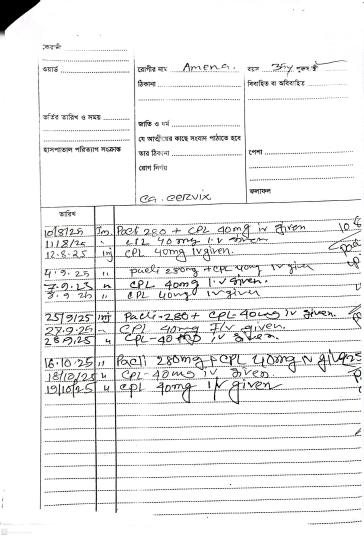 কেবার্ড
ওয়ার্ড রোগীর নাম Amena. বয়স 35y পুরুষ/স্ত্রী
ঠিকানা বিবাহিত বা অবিবাহিত
ভর্তির তারিখ ও সময়
জাতি ও ধর্ম
যে আত্মীয়ের কাছে সংবাদ পাঠাতে হবে
হাসপাতাল পরিত্যাগ সংক্রান্ত তার ঠিকানা পেশা
রোগ নির্ণয়
ফলাফল
ca. cervix
তারিখ
10/8/25 Inj. Pacli 280 + CPL 40mg iv given
11/8/25 " CPL 40 mg I.V given
12.8.25 inj CPL 40mg IV given.
4.9.25 " pacli 280mg + CPL 40mg iv given
7.9.25 " CPL 40mg I.V given
8.9.25 " CPL 40mg IV given
25/9/25 inj Pacli-280 + CPL-40mg iv given.
27.9.25 " CPL 40mg I/V given.
28.9.25 " CPL-40 iv given.
16.10.25 " Pacli 280mg + CPL 40mg iv given
18/10/25 " CPL-40mg iv given.
19/10/25 " CPL 40mg I/V given